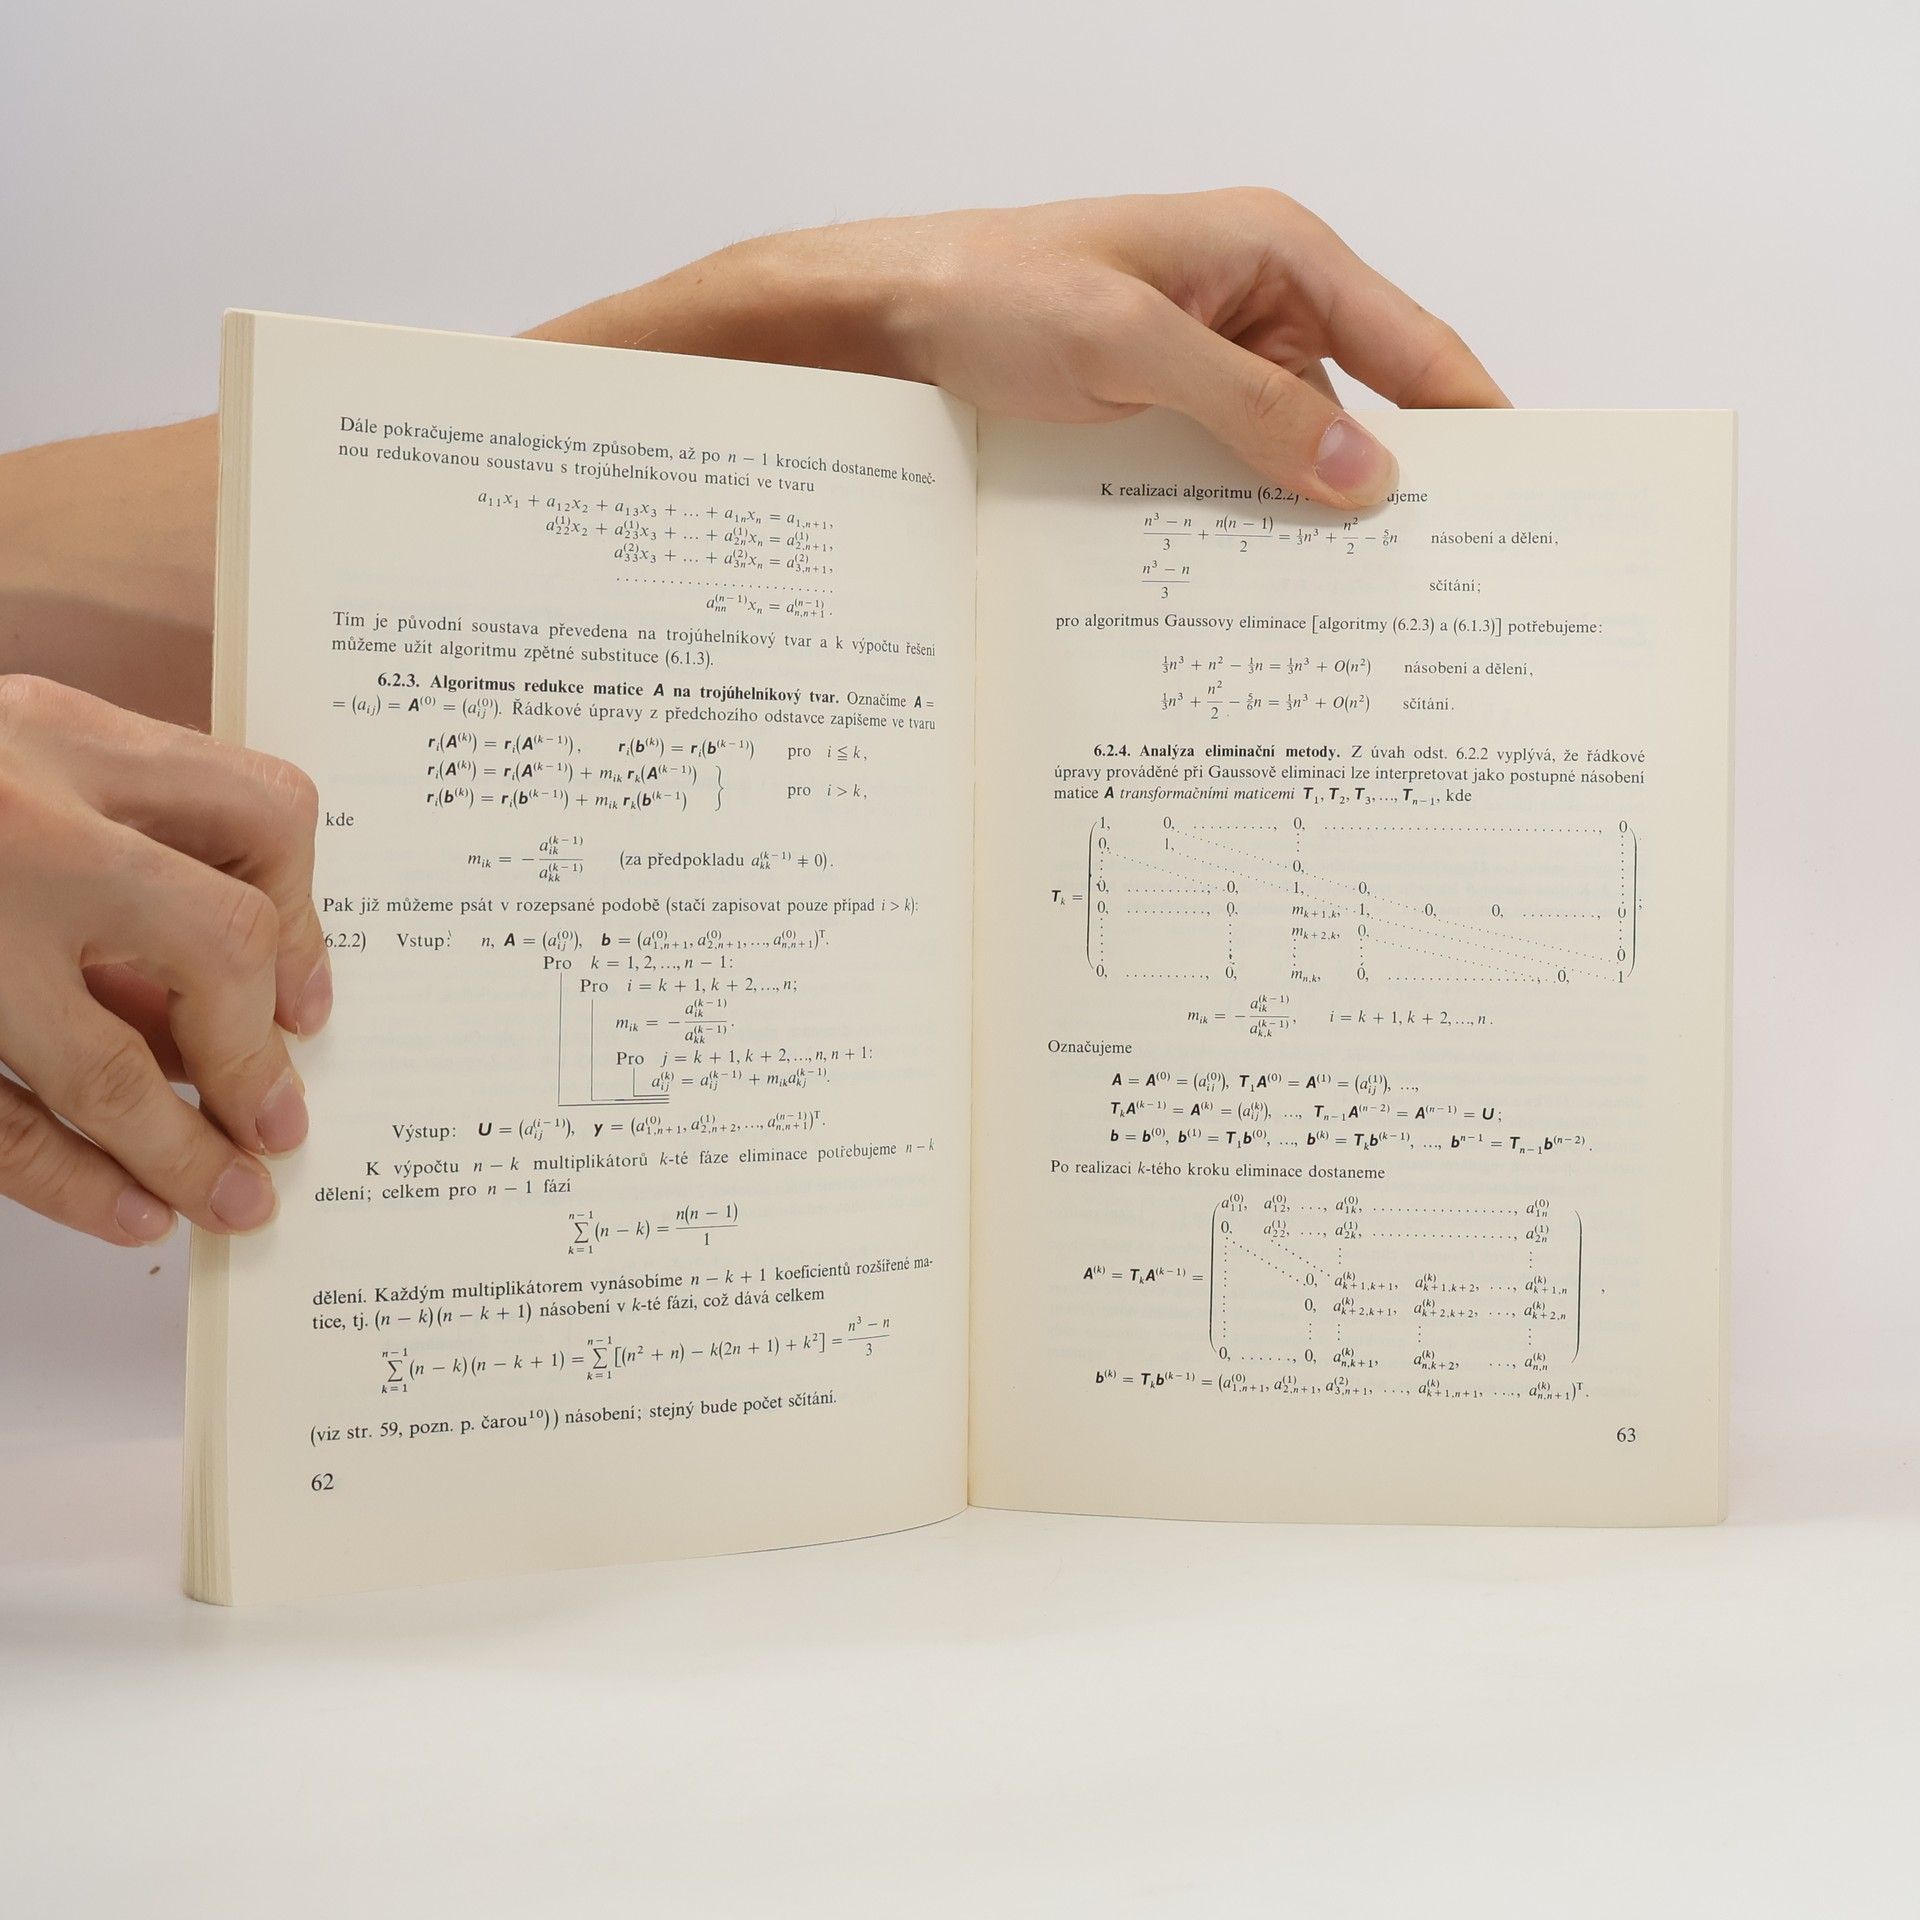 Dále pokračujeme analogickým způsobem, až po n − 1 krocích dostaneme koneč-
nou redukovanou soustavu s trojúhelníkovou maticí ve tvaru
a₁₁x₁ + a₁₂x₂ + a₁₃x₃ + ... + a₁ₙxₙ = a₁,ₙ₊₁,
a₂₂^(1)x₂ + a₂₃^(1)x₃ + ... + a₂ₙ^(1)xₙ = a₂,ₙ₊₁^(1),
a₃₃^(2)x₃ + ... + a₃ₙ^(2)xₙ = a₃,ₙ₊₁^(2),
. . . . . . . . . . . . . . . . . . . . . .
aₙₙ^(n−1)xₙ = aₙ,ₙ₊₁^(n−1).
Tím je původní soustava převedena na trojúhelníkový tvar a k výpočtu řešení
můžeme užít algoritmu zpětné substituce (6.1.3).
6.2.3. Algoritmus redukce matice A na trojúhelníkový tvar. Označíme A =
= (a_ij) = A^(0) = (a_ij^(0)). Řádkové úpravy z předchozího odstavce zapíšeme ve tvaru
r_i(A^(k)) = r_i(A^(k−1)), r_i(b^(k)) = r_i(b^(k−1)) pro i ≦ k,
r_i(A^(k)) = r_i(A^(k−1)) + m_ik r_k(A^(k−1))
r_i(b^(k)) = r_i(b^(k−1)) + m_ik r_k(b^(k−1) } pro i > k,
kde
m_ik = − a_ik^(k−1) / a_kk^(k−1) (za předpokladu a_kk^(k−1) ≠ 0).
Pak již můžeme psát v rozepsané podobě (stačí zapisovat pouze případ i > k):
6.2.2) Vstup: n, A = (a_ij^(0)), b = (a_1,n+1^(0), a_2,n+1^(0), ..., a_n,n+1^(0))^T.
Pro k = 1, 2, ..., n − 1:
Pro i = k + 1, k + 2, ..., n;
m_ik = − a_ik^(k−1) / a_kk^(k−1).
Pro j = k + 1, k + 2, ..., n, n + 1:
a_ij^(k) = a_ij^(k−1) + m_ik a_kj^(k−1).
Výstup: U = (a_ij^(i−1)), y = (a_1,n+1^(0), a_2,n+2^(1), ..., a_n,n+1^(n−1))^T.
K výpočtu n − k multiplikátorů k-té fáze eliminace potřebujeme n − k
dělení; celkem pro n − 1 fází
∑_{k=1}^{n−1} (n − k) = n(n − 1) / 1
dělení. Každým multiplikátorem vynásobíme n − k + 1 koeficientů rozšířené ma-
tice, tj. (n − k)(n − k + 1) násobení v k-té fázi, což dává celkem
∑_{k=1}^{n−1} (n − k)(n − k + 1) = ∑_{k=1}^{n−1} [(n² + n) − k(2n + 1) + k²] = (n³ − n) / 3
(viz str. 59, pozn. p. čarou¹⁰)) násobení; stejný bude počet sčítání.
62
K realizaci algoritmu (6.2.2)
(n³ − n)/3 + n(n − 1)/2 = ⅓n³ + n²/2 − ⅚n násobení a dělení,
(n³ − n)/3 sčítání;
pro algoritmus Gaussovy eliminace [algoritmy (6.2.3) a (6.1.3)] potřebujeme:
⅓n³ + n² − ⅓n = ⅓n³ + O(n²) násobení a dělení,
⅓n³ + n²/2 − ⅚n = ⅓n³ + O(n²) sčítání.
6.2.4. Analýza eliminační metody. Z úvah odst. 6.2.2 vyplývá, že řádkové
úpravy prováděné při Gaussově eliminaci lze interpretovat jako postupné násobení
matice A transformačními maticemi T₁, T₂, T₃, ..., Tₙ₋₁, kde
1, 0, ..........., 0, ..............................., 0
0, 1,
0,
T_k = 0, ..........., 0, 1, 0,
0, ..........., 0, m_k+1,k, 1, 0, 0, ..........., 0 ;
m_k+2,k, 0,
0
0, ..........., 0, m_n,k, 0, ....................., 0, 1
m_ik = − a_ik^(k−1) / a_k,k^(k−1), i = k + 1, k + 2, ..., n.
Označujeme
A = A^(0) = (a_ij^(0)), T₁A^(0) = A^(1) = (a_ij^(1)), ...,
T_kA^(k−1) = A^(k) = (a_ij^(k)), ..., T_n−1A^(n−2) = A^(n−1) = U;
b = b^(0), b^(1) = T₁b^(0), ..., b^(k) = T_kb^(k−1), ..., b^n−1 = T_n−1b^(n−2).
Po realizaci k-tého kroku eliminace dostaneme
a_11^(0), a_12^(0), ..., a_1k^(0), ................., a_1n^(0)
0, a_22^(1), ..., a_2k^(1), ................., a_2n^(1)
A^(k) = T_kA^(k−1) = 0, a_k+1,k+1^(k), a_k+1,k+2^(k), ..., a_k+1,n^(k) ,
0, a_k+2,k+1^(k), a_k+2,k+2^(k), ..., a_k+2,n^(k)
0, ......, 0, a_n,k+1^(k), a_n,k+2^(k), ..., a_n,n^(k)
b^(k) = T_kb^(k−1) = (a_1,n+1^(0), a_2,n+1^(1), a_3,n+1^(2), ..., a_k+1,n+1^(k), ..., a_n,n+1^(k))^T.
63